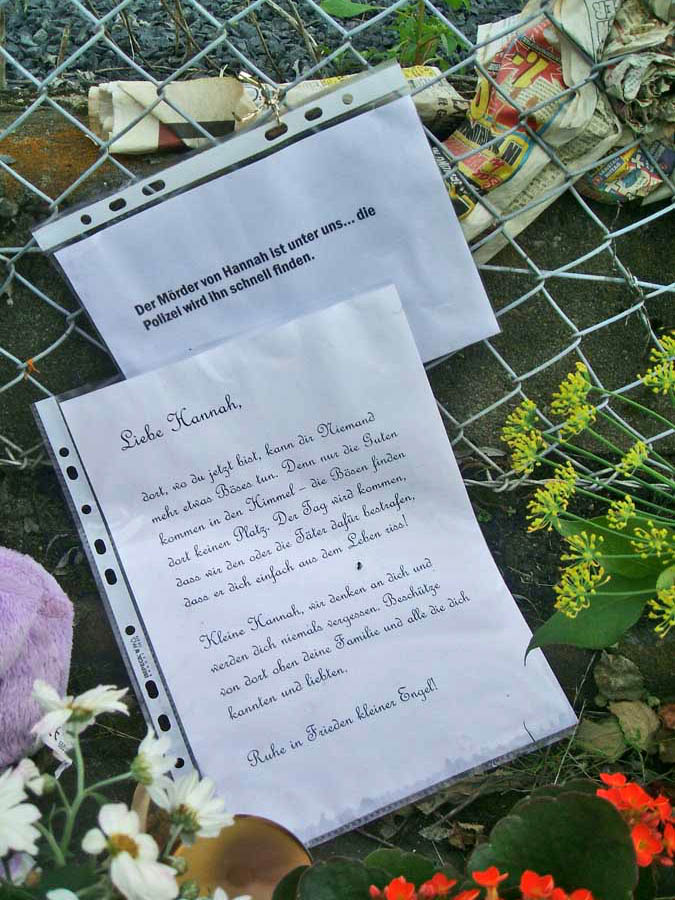 Der Mörder von Hannah ist unter uns... die
Polizei wird ihn schnell finden.
Liebe Hannah,
dort, wo du jetzt bist, kann dir Niemand
mehr etwas Böses tun. Denn nur die Guten
kommen in den Himmel – die Bösen finden
dort keinen Platz. Der Tag wird kommen,
dass wir den oder die Täter dafür bestrafen,
dass er dich einfach aus dem Leben riss!
Kleine Hannah, wir denken an dich und
werden dich niemals vergessen. Beschütze
von dort oben deine Familie und alle die dich
kannten und liebten.
Ruhe in Frieden kleiner Engel!